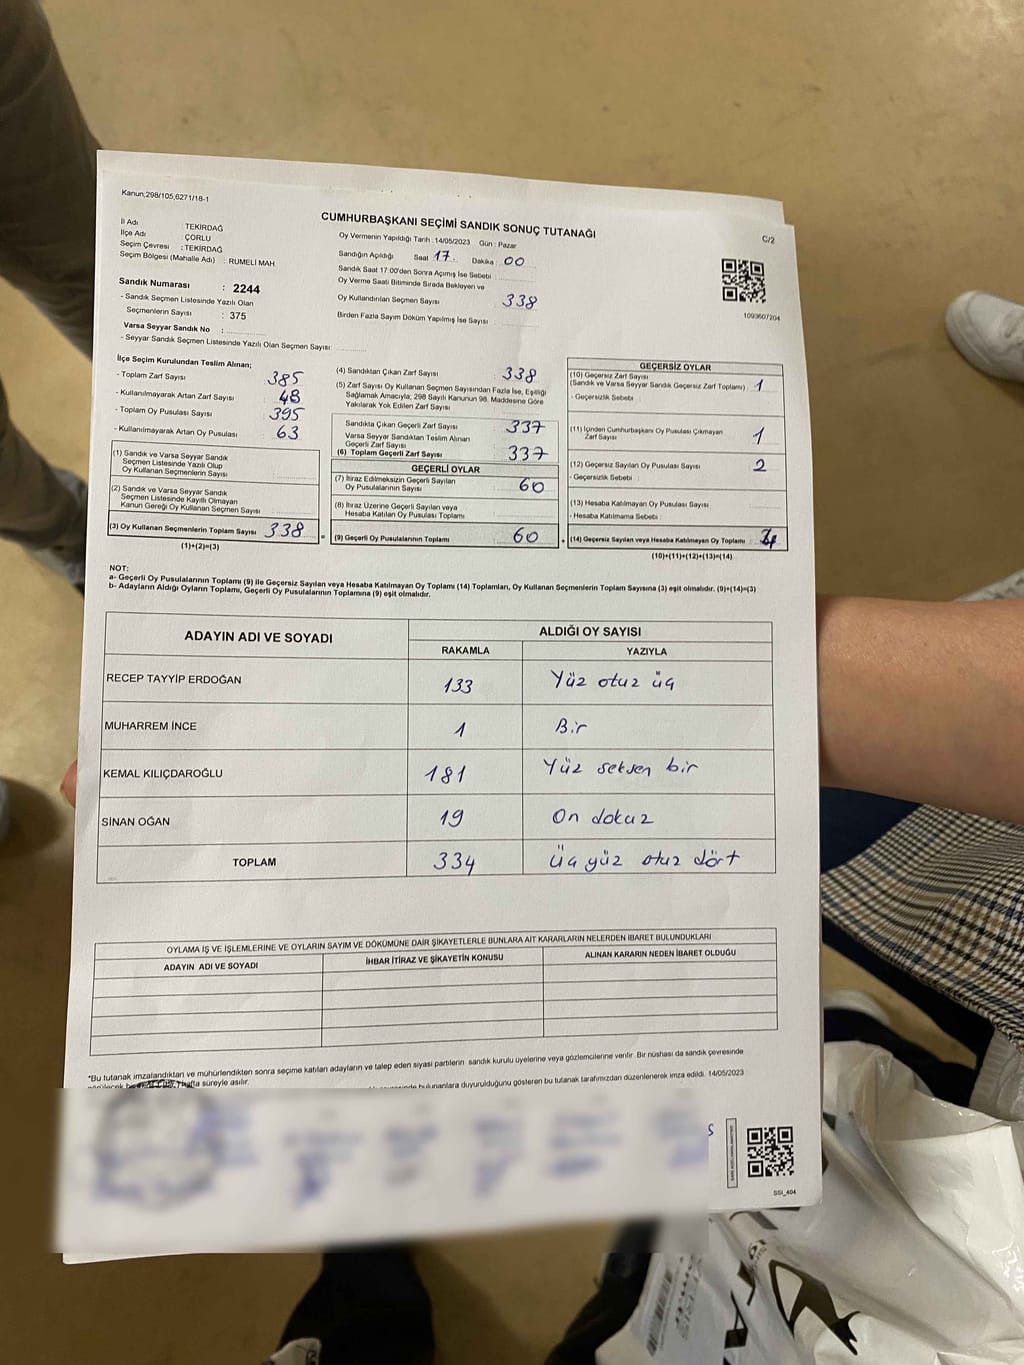 Kanun;298/105,6271/18-1
CUMHURBAŞKANI SEÇİMİ SANDIK SONUÇ TUTANAĞI
C/2
İl Adı : TEKİRDAĞ
İlçe Adı : ÇORLU
Seçim Çevresi : TEKİRDAĞ
Seçim Bölgesi (Mahalle Adı) : RUMELİ MAH.
Oy Vermenin Yapıldığı Tarih : 14/05/2023 Gün : Pazar
Sandığın Açıldığı Saat 17. Dakika 00
Sandık Saat 17:00'den Sonra Açımış İse Sebebi
Oy Verme Saati Bitiminde Sırada Bekleyen ve
Oy Kullandırılan Seçmen Sayısı 338
Birden Fazla Sayım Döküm Yapılmış İse Sayısı
1093607204
Sandık Numarası : 2244
- Sandık Seçmen Listesinde Yazılı Olan
Seçmenlerin Sayısı : 375
Varsa Seyyar Sandık No :
- Seyyar Sandık Seçmen Listesinde Yazılı Olan Seçmen Sayısı:
İlçe Seçim Kurulundan Teslim Alınan;
- Toplam Zarf Sayısı 385
- Kullanılmayarak Artan Zarf Sayısı 48
- Toplam Oy Pusulası Sayısı 395
- Kullanılmayarak Artan Oy Pusulası 63
(1) Sandık ve Varsa Seyyar Sandık
Seçmen Listesinde Yazılı Olup
Oy Kullanan Seçmenlerin Sayısı
(2) Sandık ve Varsa Seyyar Sandık
Seçmen Listesinde Kayıtlı Olmayan
Kanun Gereği Oy Kullanan Seçmen Sayısı
(3) Oy Kullanan Seçmenlerin Toplam Sayısı 338
(1)+(2)=(3)
(4) Sandıktan Çıkan Zarf Sayısı 338
(5) Zarf Sayısı Oy Kullanan Seçmen Sayısından Fazla İse, Eşitliği
Sağlamak Amacıyla, 298 Sayılı Kanunun 98. Maddesine Göre
Yakılarak Yok Edilen Zarf Sayısı
Sandıkta Çıkan Geçerli Zarf Sayısı 337
Varsa Seyyar Sandıktan Teslim Alınan
Geçerli Zarf Sayısı
(6) Toplam Geçerli Zarf Sayısı 337
GEÇERLİ OYLAR
(7) İtiraz Edilmeksizin Geçerli Sayılan
Oy Pusulalarının Sayısı 60
(8) İtiraz Üzerine Geçerli Sayılan veya
Hesaba Katılan Oy Pusulası Toplamı
(9) Geçerli Oy Pusulalarının Toplamı 60
GEÇERSİZ OYLAR
(10) Geçersiz Zarf Sayısı
(Sandık ve Varsa Seyyar Sandık Geçersiz Zarf Toplamı) 1
- Geçersizlik Sebebi
(11) İçinden Cumhurbaşkanı Oy Pusulası Çıkmayan
Zarf Sayısı 1
(12) Geçersiz Sayılan Oy Pusulası Sayısı 2
- Geçersizlik Sebebi :
(13) Hesaba Katılmayan Oy Pusulası Sayısı
- Hesaba Katılmama Sebebi
(14) Geçersiz Sayılan veya Hesaba Katılmayan Oy Toplamı
(10)+(11)+(12)+(13)=(14)
NOT:
a- Geçerli Oy Pusulalarının Toplamı (9) ile Geçersiz Sayılan veya Hesaba Katılmayan Oy Toplamı (14) Toplamları, Oy Kullanan Seçmenlerin Toplam Sayısına (3) eşit olmalıdır. (9)+(14)=(3)
b- Adayların Aldığı Oyların Toplamı, Geçerli Oy Pusulalarının Toplamına (9) eşit olmalıdır.
ADAYIN ADI VE SOYADI
ALDIĞI OY SAYISI
RAKAMLA YAZIYLA
RECEP TAYYİP ERDOĞAN 133 Yüz otuz üç
MUHARREM İNCE 1 Bir
KEMAL KILIÇDAROĞLU 181 Yüz seksen bir
SİNAN OĞAN 19 On dokuz
TOPLAM 334 Üç yüz otuz dört
OYLAMA İŞ VE İŞLEMLERİNE VE OYLARIN SAYIM VE DÖKÜMÜNE DAİR ŞİKAYETLERLE BUNLARA AİT KARARLARIN NELERDEN İBARET BULUNDUKLARI
ADAYIN ADI VE SOYADI İHBAR İTİRAZ VE ŞİKAYETİN KONUSU ALINAN KARARIN NEDEN İBARET OLDUĞU
*Bu tutanak imzalandıktan ve mühürlendikten sonra seçime katılan adayların ve talep eden siyasi partilerin sandık kurulu üyelerine veya gözlemcilerine verilir. Bir nüshası da sandık çevresinde
hafta süreyle asılır. bulunanlara duyurulduğunu gösteren bu tutanak tarafımızdan düzenlenerek imza edildi. 14/05/2023
SSI_404